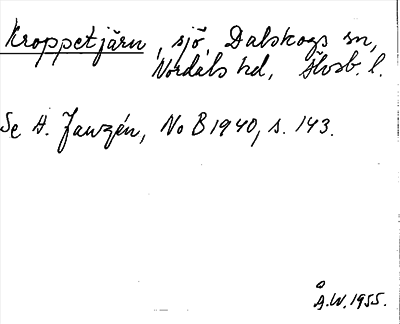 Kroppetjärn, sjö, Dalskogs sn,
Nordals hd, Älvsb. l.
Se A. Janzén, NoB 1940, s. 143.
Å.W. 1955.